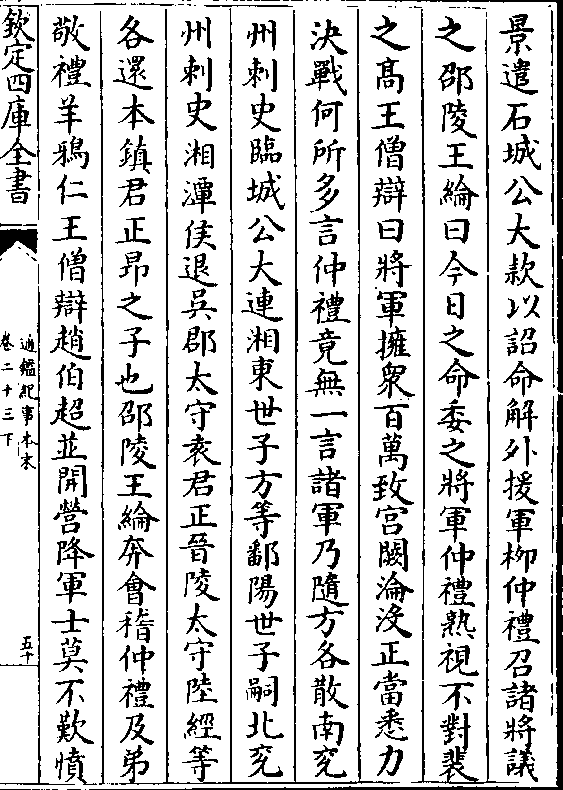 景遣石城公大款以詔命解外援軍柳仲禮召諸將議
之邵陵王綸曰今日之命委之將軍仲禮熟視不對裴
之髙王僧辯曰將軍擁衆百萬致宫闕淪没正當悉力
決戰何所多言仲禮竟無一言諸軍乃隨方各散南兖
州刺史臨城公大連湘東世子方等鄱陽世子嗣北兖
州刺史湘潭侯退吳郡太守袁君正晉陵太守陸經等
各還本鎮君正昻之子也邵陵王綸奔會稽仲禮及弟
敬禮羊鴉仁王僧辯趙伯超並開營降軍士莫不歎憤
欽定四庫全書
通鑑紀事本末
卷二十三下
五十